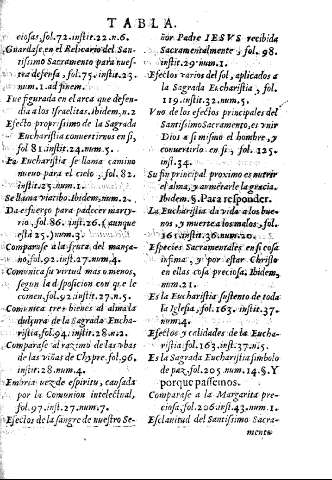 TABLA.
ciosas, fol. 72. instit. 22. n. 6.
Guardase, en el Relicario del San-
tissimo Sacramento para nues-
tra defensa, fol. 75. instit. 23.
num. 1. ad finem.
Fue figurada en el arca que defen-
dia a los Israelitas, ibidem, n. 2
Efecto proprissimo de la Sagrada
Eucharistia convertirnos en si,
fol 81. instit. 24. num. 5.
La Eucharistia se llama camino
nuevo para el cielo, fol. 82.
instit. 25. num. 1.
Se llama viatico. Ibidem, num. 2.
Da esfuerço para padecer marty-
rio, fol. 86. inst. 26. (aunque
está 25.) num. 3.
Comparase a la grana del mança-
no, fol. 92. instit. 27. num. 4.
Comunica su virtud mas o menos,
segun la disposicion con que le
comen, fol. 92. instit. 27. n. 5.
Comunica tres bienes al alma la
dulçura de la Sagrada Eucha-
ristia, fol. 94. instit. 28. n. 2.
Comparase al razimo de las vbas
de las viñas de Chypre, fol. 96.
instit. 28. num. 4.
Embriaguez de espiritu, causada
por la Comunion intelectual,
fol. 97. instit. 27. num. 7.
Efectos de la sangre de nuestro Se-
ñor Padre IESVS recibida
Sacramentalmente, fol. 98.
instit. 29. num. 1.
Efectos varios del sol, aplicados a
la Sagrada Eucharistia, fol.
119. instit. 32. num. 5.
Vno de los efectos principales del
Santissimo Sacramento, es vnir
Dios a si mismo el hombre, y
convertirlo en si, fol. 125.
inst. 34.
Su fin principal proximo es nutrir
el alma, y aumentarle la gracia.
Ibidem. §. Para responder.
La Eucharistia da vida a los bue-
nos, y muerte a los malos, fol.
161. instit. 36. num. 20.
Especies Sacramentales en si cosa
infima, y por estar Christo
en ellas cosa preciosa. Ibidem,
num. 21.
Es la Eucharistia sostento de toda
la Iglesia, fol. 163. instit. 37.
num. 4.
Efectos y calidades de la Eucha-
ristia, fol. 163. inst. 37. n. 5.
Es la Sagrada Eucharistia simbolo
de paz, fol. 205. num. 14. §. Y
porque passemos.
Comparase a la Margarita pre-
ciosa, fol. 206. inst. 43. num. 1.
Esclavitud del Santissimo Sacra-
mento